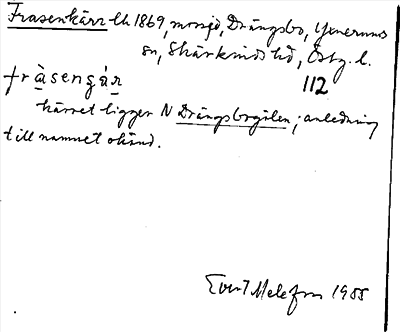 Frasenkärr lh 1869, mosse, Drängsbo, Yxnerums
sn, Skärkinds hd, Östg. l.
fràsengár
112
kärret ligger N Drängsbogölen; anledning
till namnet okänd.
Evert Melefors 1955